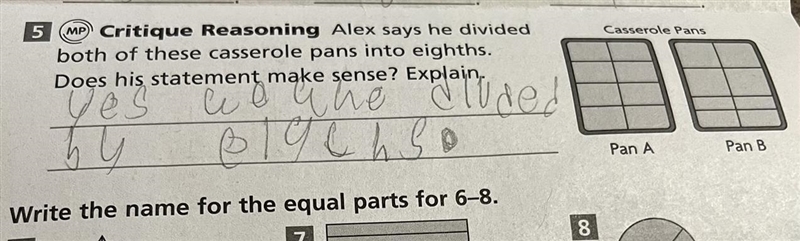 5 MP Critique Reasoning Alex says he divided
both of these casserole pans into eighths.
Does his statement make sense? Explain.
Casserole Pans
yes divided
by eigehs.
Pan A
Pan B
Write the name for the equal parts for 6–8.
7
8